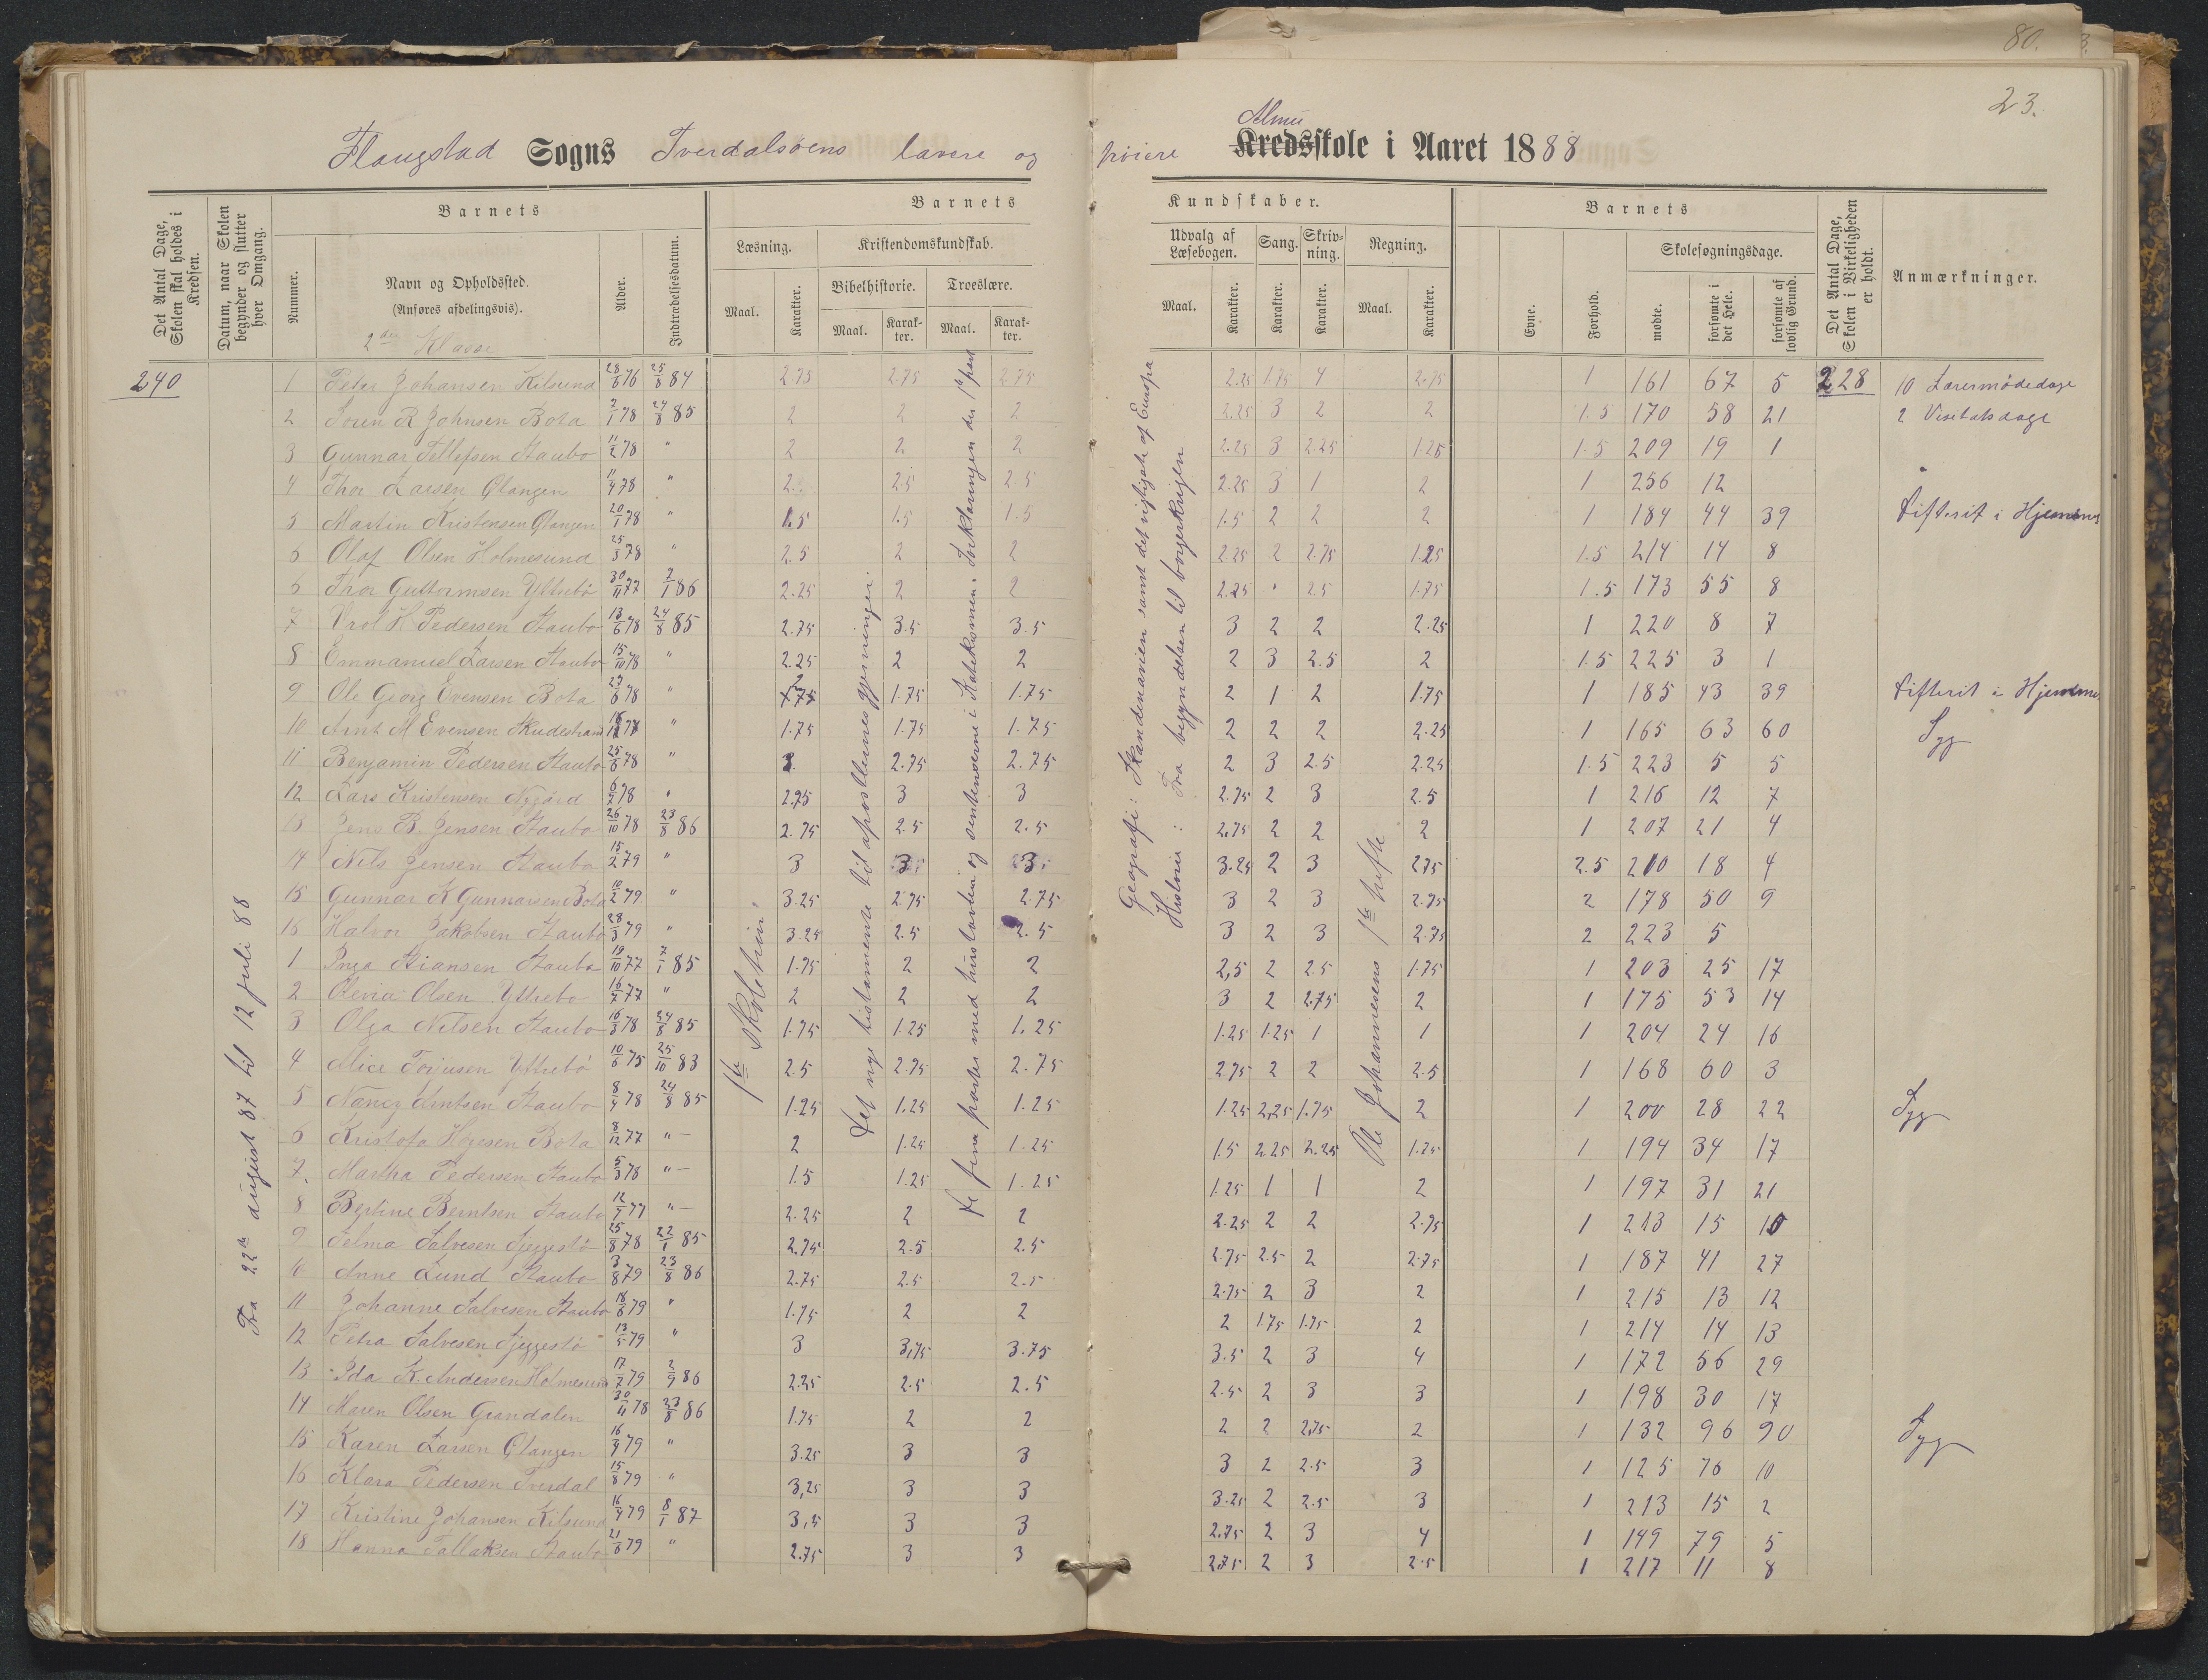 80.
23.
Flaugstad Sogns Tverdalsøens lavere og høiere Almu Kredsskole i Aaret 1888
Det Antal Dage, Skolen skal holdes i Kredsen.
Datum, naar Skolen begynder og slutter hver Omgang.
Barnets
Nummer.
Navn og Opholdssted.
(Anføres afdelingsvis).
Alder.
Indtrædelsesdatum.
Barnets Kundskaber.
Læsning.
Maal.
Karakter.
Kristendomskundskab.
Bibelhistorie.
Maal.
Karakter.
Troeslære.
Maal.
Karakter.
Udvalg af Læsebogen.
Maal.
Karakter.
Sang.
Karakter.
Skrivning.
Karakter.
Regning.
Maal.
Karakter.
Barnets
Evne.
Forhold.
Skolesøgningsdage.
mødte.
forsømte i det Hele.
forsømte af lovlig Grund.
Det Antal Dage, Skolen i Virkeligheden er holdt.
Anmærkninger.
2den Klasse
240
Fra 22de august 87 til 12 juli 88
1ste Skoletrin
Det nye testamente til apostlernes gjerninger.
De fem parter med huustavlen og sentenserne i Katekismen. Forklaringen den 1ste part
Geografi: Skandenavien samt det vigtigste af Europa
Historie: Fra begyndelsen til borgerkrigen
Ole Johannesens 1ste hefte
1 Peter Johansen Kilsund 28/6 76 25/8 84 2.75 2.75 2.75 2.25 1.75 4 2.75 1 161 67 5 228 10 Lærermødedage
2 Søren R Johnsen Bota 2/1 78 24/8 85 2 2 2 2.25 3 2 2 1.5 170 58 21 2 Visitatsdage
3 Gunnar Tellefsen Staubo 11/2 78 " 2 2 2 2.25 3 2.25 1.25 1.5 209 19 1
4 Thor Larsen Glangen 11/4 78 " 2. 2.5 2.5 2.25 3 1 2 1 256 12
5 Martin Kristensen Glangen 20/1 78 " 1.5 1.5 1.5 1.5 2 2 2 1 184 44 39 Difterit i Hjemmet
6 Olaf Olsen Holmesund 25/3 78 " 2.5 2 2 2.25 2 2.75 1.25 1.5 214 14 8
6 Thor Guttormsen Yttrebø 30/11 77 2/1 86 2.25 2 2 2.25 " 2.5 1.75 1.5 173 55 8
7 Vrol H Pedersen Staubo 13/6 78 24/8 85 2.75 3.5 3.5 3 2 2 2.25 1 220 8 7
8 Emmanuel Larsen Staubo 15/10 78 " 2.25 2 2 2 3 2.5 2 1.5 225 3 1
9 Ole Georg Evensen Bota 29/6 78 " 2 1.75 1.75 2 1 2 1.75 1 185 43 39 Difterit i Hjemmet
10 Arnt M Evensen Skudestrand " 1.75 1.75 1.75 2 2 2 2.25 1 165 63 60 Syg
11 Benjamin Pedersen Staubo 25/6 78 " 3. 2.75 2.75 2 3 2.5 2.25 1.5 223 5 5
12 Lars Kristensen Nygård 6/7 78 " 2.75 3 3 2.75 2 3 2.5 1 216 12 7
13 Jens B. Jensen Staubo 26/10 78 23/8 86 2.75 2.5 2.5 2.75 2 2 2 1 207 21 4
14 Nils Jensen Staubo 15/2 79 " 3 3 3 3.25 2 3 2.75 2.5 210 18 4
15 Gunnar K Gunnarsen Bota 10/2 79 " 3.25 2.75 2.75 3 2 3 2.75 2 178 50 9
16 Halvor Jakobsen Staubo 28/3 79 " 3.25 2.5 2.5 3 2 3 2.75 2 223 5
1 Inga Stiansen Staubo 19/10 77 7/1 85 1.75 2 2 2,5 2 2.5 1.75 1 203 25 17
2 Olevia Olsen Yttrebø 16/7 77 " 2 2 2 3 2 2.75 2 1 175 53 14
3 Olga Nilsen Staubo 16/3 78 24/8 85 1.75 1.25 1.25 1.25 1.25 1 1 1 204 24 16
4 Alice Terjusen Yttrebø 10/6 75 25/10 83 2.5 2.75 2.75 2.75 2 2 2.5 1 168 60 3
5 Nancy Arntsen Staubo 8/4 78 24/8 85 1.25 1.25 1.25 1.25 2,25 1.75 2 1 200 28 22 Syg
6 Kristofa Hojesen Bota 8/12 77 " – 2 1.25 1.25 1.5 2.25 2.25 1.25 1 194 34 17
7. Martha Pedersen Staubo 5/3 78 " – 1.5 1.25 1.25 1.25 1 1 2 1 197 31 21
8 Bertine Berntsen Staubo 12/7 77 " – 2.25 2 2 2.25 2 2 2.75 1 213 15 10
9 Selma Salvesen Sjeggestø 25/8 78 22/1 85 2.75 2.5 2.5 2.75 2.5 2 2.75 1 187 41 27
10 Anne Lund Staubo 3/8 79 23/8 86 2.75 2.5 2.5 2.75 2 3 2 1 215 13 12
11 Johanne Salvesen Staubo 18/6 79 " 1.75 2 2 2 1.75 1.75 2 1 214 14 13
12 Petra Salvesen Sjeggestø 13/5 79 " 3 3,75 3.75 3.5 2 3 4 1 172 56 29
13 Ida K. Andersen Holmesund 17/7 79 2/9 86 2.25 2.5 2.5 2.5 2 3 3 1 198 30 17
14 Maren Olsen Grandalen 30/11 78 23/8 86 1.75 2 2 2 2 2,75 2 1 132 96 90 Syg
15 Karen Larsen Glangen 16/9 79 " 3.25 3 3 3 2 2.5 3 1 125 76 10
16 Klara Pedersen Tverdal 15/8 79 " 3,25 3 3 3.25 2 2.5 3 1 213 15 2
17 Kristine Johansen Kilsund 16/4 79 8/1 87 3,5 3 3 2.75 2 3 4 1 149 79 5
18 Hanna Tallaksen Staubo 21/6 79 " 2.75 3 3 2.75 2 3 2.5 1 217 11 8